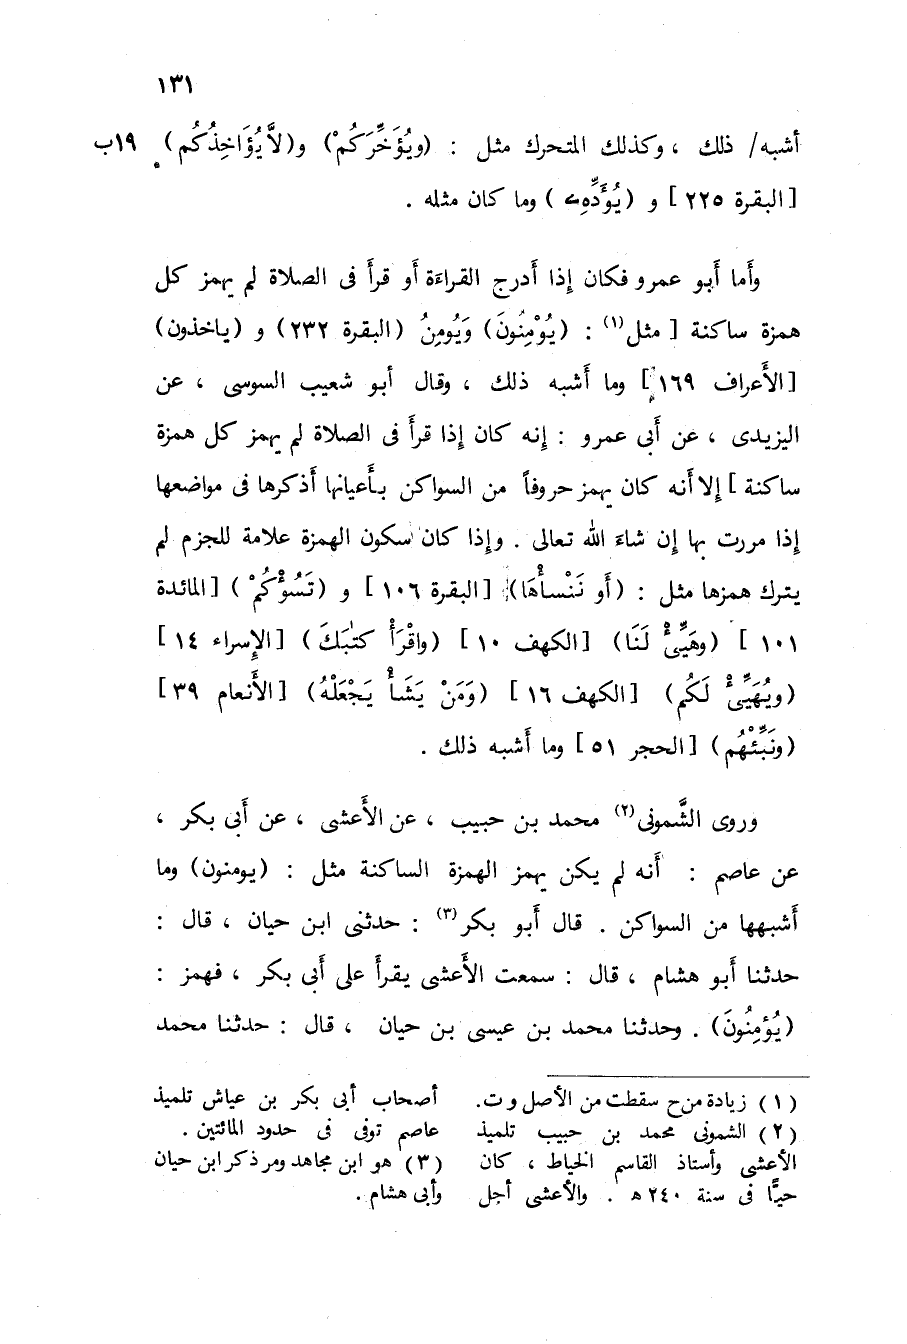 ١٣١
أشبه/ ذلك ، وكذلك المتحرك مثل : (ويُؤَخِّرَكُمْ) و(لاَّ يُؤَاخِذُكُم) ١٩ب
[البقرة ٢٢٥] و (يُؤَدِّهِۦ) وما كان مثله .
وأَما أَبو عمرو فكان إِذا أَدرج القراءَة أَو قرأَ فى الصلاة لم يهمز كل
همزة ساكنة [ مثل(١) : (يُوْمِنُونَ) وَيُومِنُ (البقرة ٢٣٢) و (ياخذون)
[الأَعراف ١٦٩] وما أَشبه ذلك ، وقال أَبو شعيب السوسى ، عن
اليزيدى ، عن أَبى عمرو : إِنه كان إِذا قرأَ فى الصلاة لم يهمز كل همزة
ساكنة ] إِلا أَنه كان يهمز حروفاً من السواكن بأَعيانها أَذكرها فى مواضعها
إِذا مررت بها إِن شاءَ الله تعالى . وإِذا كان سكون الهمزة علامة للجزم لم
يترك همزها مثل : (أَو نَنْسأْهَا) [البقرة ١٠٦] و (تَسُؤْكُمْ) [المائدة
١٠١] (وهَيِّئْ لَنَا) [الكهف ١٠] (واقْرَأْ كتٰبَكَ) [الإِسراء ١٤]
(ويُهَيِّئْ لَكُم) [الكهف ١٦] (وَمَنْ يَشَأْ يَجْعَلْهُ) [الأَنعام ٣٩]
(ونَبِّئْهُم) [الحجر ٥١] وما أَشبه ذلك .
وروى الشَّمونى(٢) محمد بن حبيب ، عن الأَعشى ، عن أَبى بكر ،
عن عاصم : أَنه لم يكن يهمز الهمزة الساكنة مثل : (يومنون) وما
أَشبهها من السواكن . قال أَبو بكر(٣) : حدثنى ابن حيان ، قال :
حدثنا أَبو هشام ، قال : سمعت الأَعشى يقرأَ على أَبى بكر ، فهمز :
(يُؤمِنُونَ) . وحدثنا محمد بن عيسى بن حيان ، قال : حدثنا محمد
(١) زيادة من ح سقطت من الأصل و ت.
(٢) الشمونى محمد بن حبيب تلميذ
الأعشى وأستاذ القاسم الخياط ، كان
حيًّا فى سنة ٢٤٠ ه . والأعشى أجل
أصحاب أبى بكر بن عياش تلميذ
عاصم توفى فى حدود المائتين .
(٣) هو ابن مجاهد ومر ذكر ابن حيان
وأبى هشام .